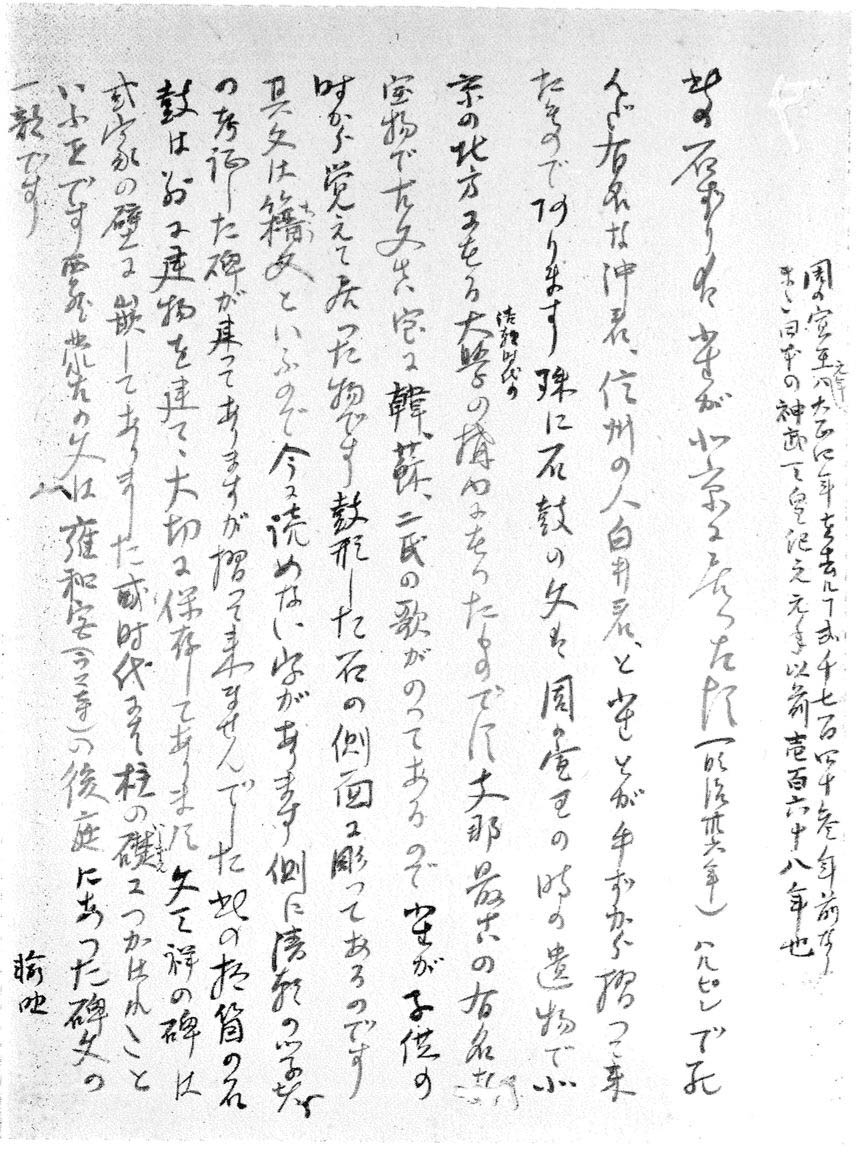 周の宣王ハ大正四年を去ル丁弐千七百四十参年前なり
元年
まニ日本の神武天皇紀元元年以前壱百六十八年也
此の石ずりは小生が北京に居つた頃(明治卅六年)ハルピンで死
んだ有名な沖君、信州の人白井君、と小生とが手ずから摺つて来
たものであります 殊に石鼓の文は周の宣王の時の遺物で北
京の北方にある大学の構内にあつたものです 支那最古の有名な
清朝時代の
宝物で古文真宝に韓、蘇、二氏の歌がのつてあるので小生が子供の
時から覚えて居つた物です 鼓形した石の側面に彫つてあるのです
其文は籀文といふので今に読めない字があります 側に清朝の学者
の考証した碑が建つてありますが摺つて来ませんでした 此の拾箇の石
鼓は別に建物を建てゝ大切に保存してあります 文天祥の碑は
或家の壁に嵌してありました 或時代には柱の礎につかはれたこと
いふ で
一部です
の文は雍和宮(今ハ寺)の後庭にあつた碑文の